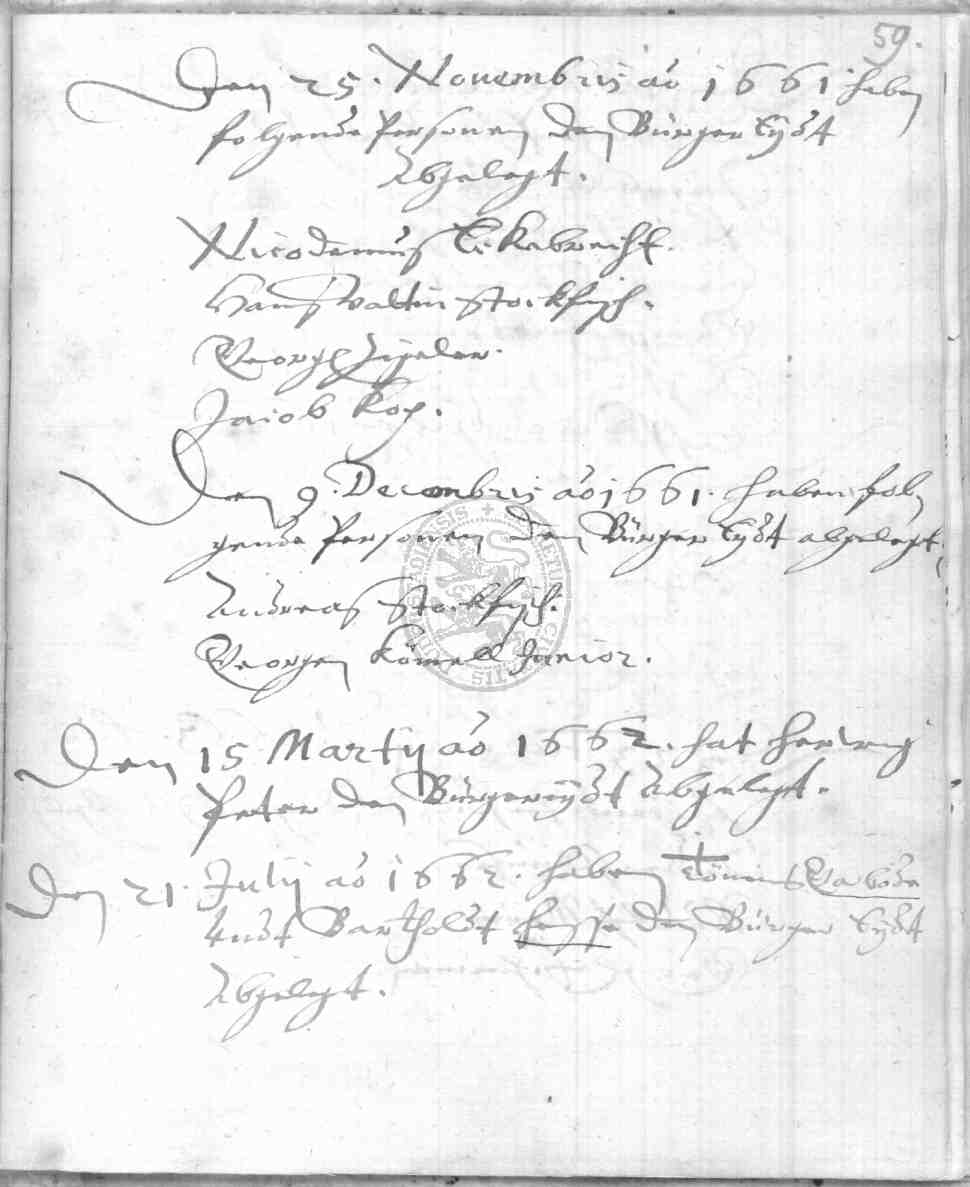 59.
Den 25. Novembris ao 1661 haben
folgende Personen den Bürger Eÿdt
Abgelegt.
Nicodemus Ekebrecht.
Hanß Valtin Stockfisch.
Georg Zigeler.
Jacob Kop.
Den 9. Decembris ao 1661. haben fol,
gende Personen den Bürger Eÿdt abgelegt,
Andreas Stockfisch.
Georgen Kömell Junior.
Den 15 Martÿ ao 1662. hat Herwig
Peter den Bürgereÿdt Abgelegt.
Den 21. Julÿ ao 1662. haben Tönnies
undt Bartholdt Hesse den Bürger Eÿdt
Abgelegt.